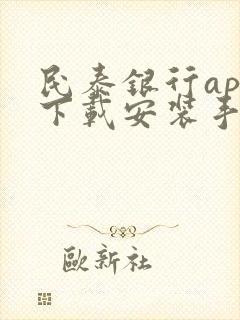 民泰銀行ap
下載安裝手
歐新社